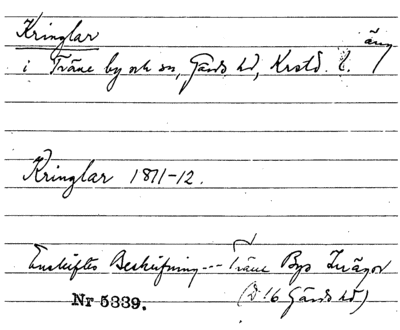 Kringlar
äng
i Träne by och sn, Gärds hd, Krstd. l.
Kringlar 1811-12.
Enskiftes Beskrifning --- Träne Bys Inägor
Nr 5339. (D 16 Gärds hd)